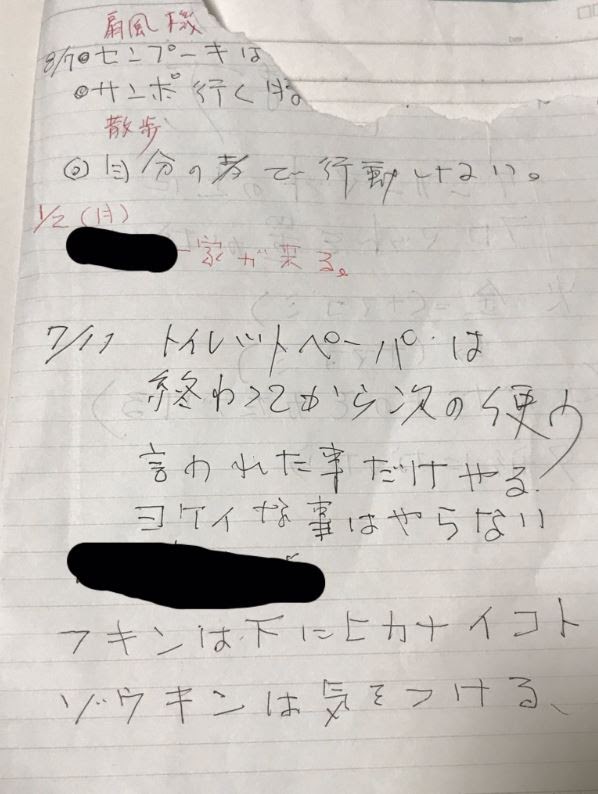 扇風機
8/7◎センプーキは
◎サンポ行く時
散歩
◎自分の考で行動しない。
1/2(月)
一家が来る。
7/17 トイレットペーパーは
終わってから次の使う
言われた事だけやる.
ヨケイな事はやらない
フキンは下にヒカナイコト
ゾウキンは気をつける、